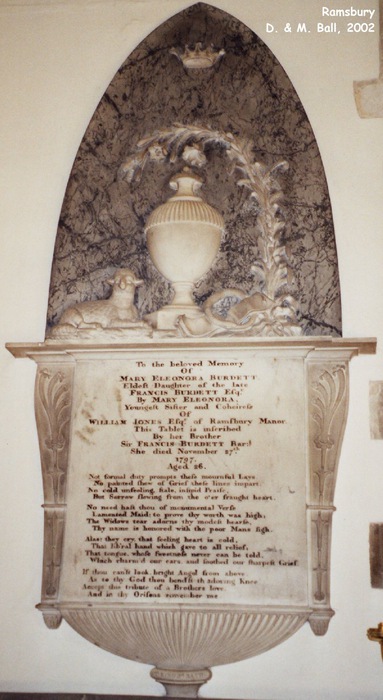 Ramsbury
D. & M. Ball, 2002
To the beloved Memory
Of
MARY ELEONORA BURDETT
Eldeſt Daughter of the late
FRANCIS BURDETT Eſqr
By MARY ELEONORA,
Youngeſt Siſter and Coheireſs
Of
WILLIAM JONES Eſqr of Ramſbury Manor.
This Tablet is inſcribed
By her Brother
Sir FRANCIS BURDETT Bart
She died November
1797.
Aged 26.
Not formal duty prompts theſe mournful Lays
No painted ſhew of Grief theſe lines impart
No cold unfeeling, ſtale, inſipid Praiſe,
But Sorrow flowing from the o'er fraught heart.
No need haſt thou of monumental Verſe
Lamented Maid: to prove thy worth was high:
The Widows tear adorns thy modeſt hearſe,
Thy name is honored with the poor Mans ſigh.
Alas: they cry that feeling heart is cold,
That lib'ral hand which gave to all relief,
That tongue, whoſe ſweetneſs never can be told,
Which charm'd our ears, and ſoothed our ſharpeſt Grief.
If thou canſt look, bright Angel from above
As to thy God thou bendſt th' adoring Knee
Accept this tribute of a Brothers love,
And in thy Oriſons remember me.